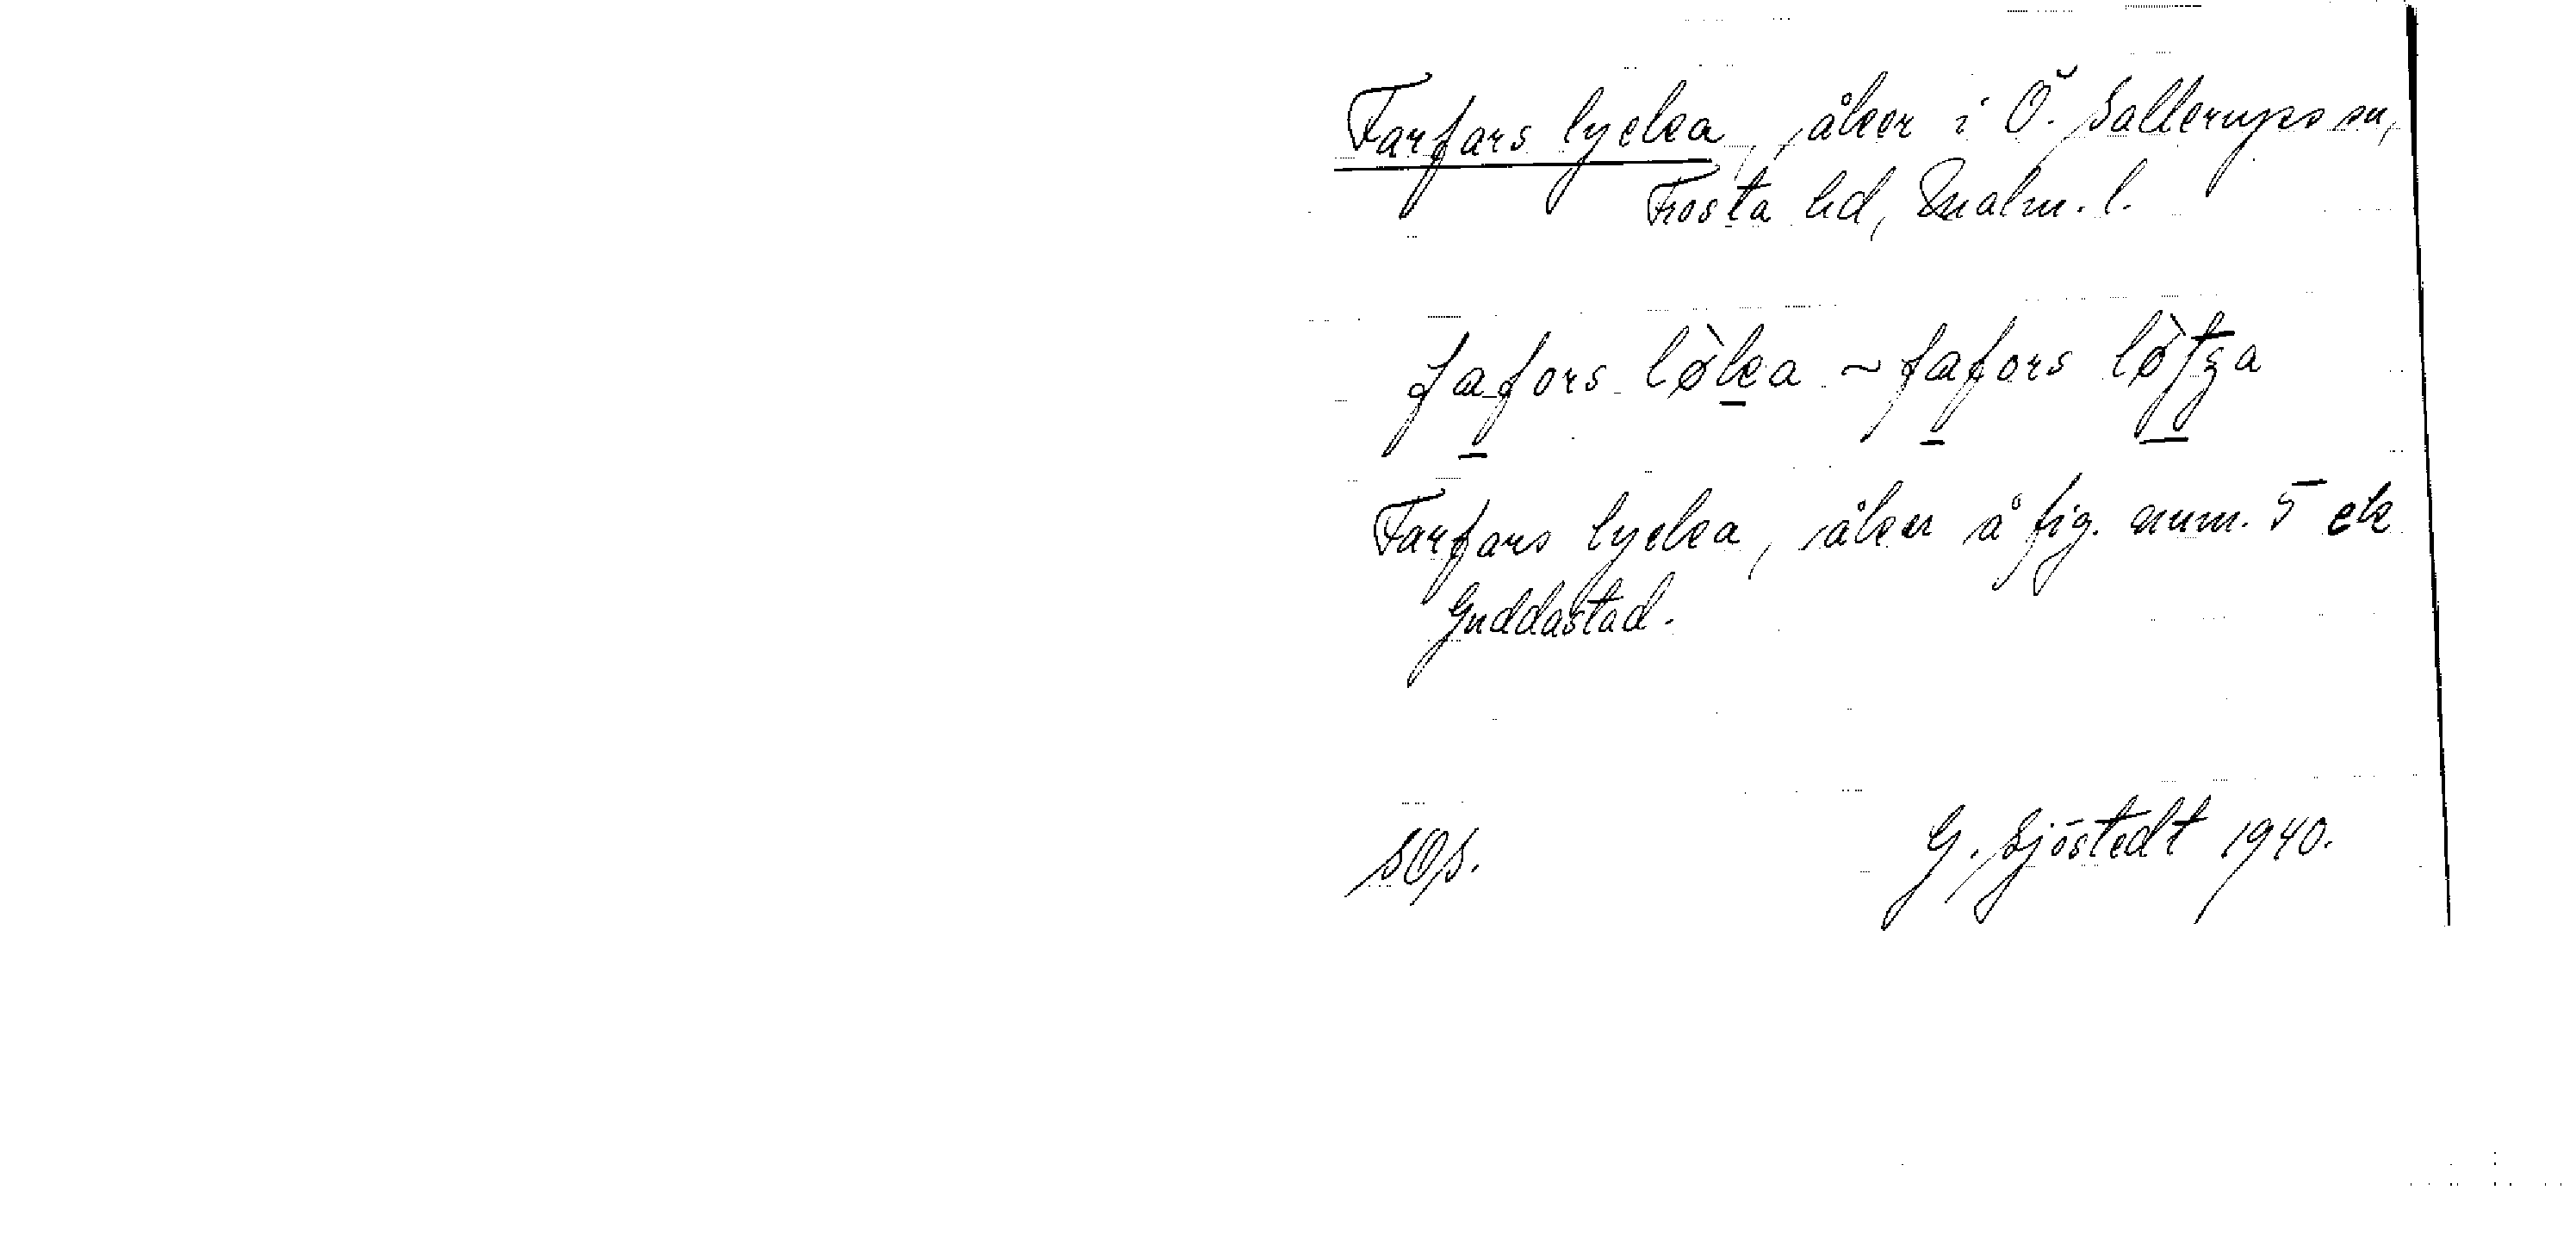 Farfars lycka, åker i Ö. Sallerups sn,
Frosta hd, Malm. l.
fafors lø̀ka ~ fafors
Farfars lycka, åker å fig. num. 5 ek
Guddastad.
SOS.
G. Sjöstedt 1940.